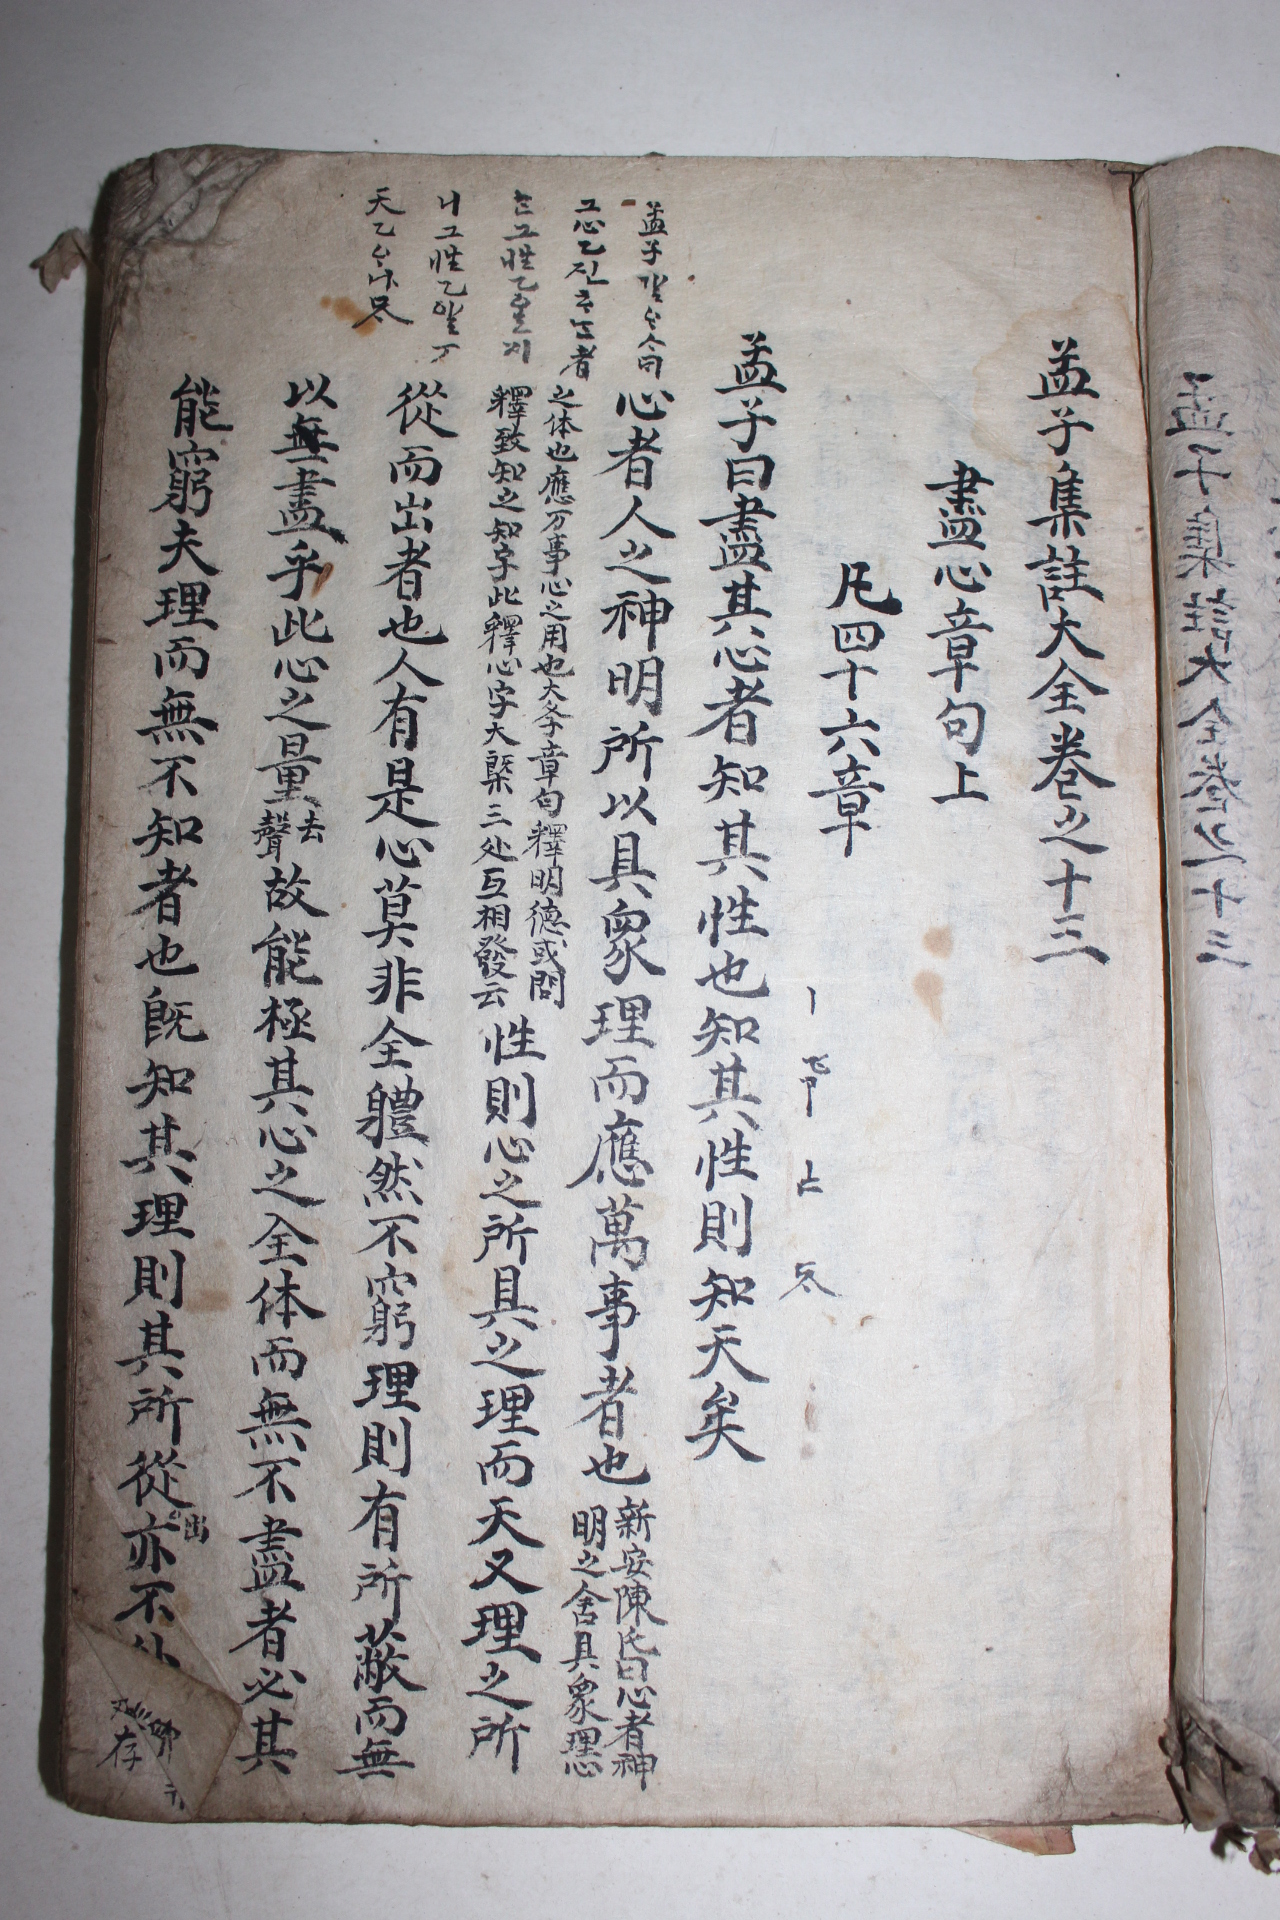 孟子集註大全卷之十三
盡心章句上
凡四十六章
孟子曰盡其心者知其性也知其性則知天矣
心者人之神明所以具衆理而應萬事者也
新安陳氏曰心者神
明之舍具衆理心
之体也應万事心之用也大李章句釋明德或問
釋致知之知字此釋心字大槩三处互相發云
性則心之所具之理而天又理之所
從而出者也人有是心莫非全體然不窮理則有所蔽而無
以無盡乎此心之量
去
聲
故能極其心之全体而無不盡者必其
能窮夫理而無不知者也旣知其理則其所從
出
亦不外
孟子
그心乙진
者
그性乙
니그性乙알
天乙
存
孟子集註大全卷之十三